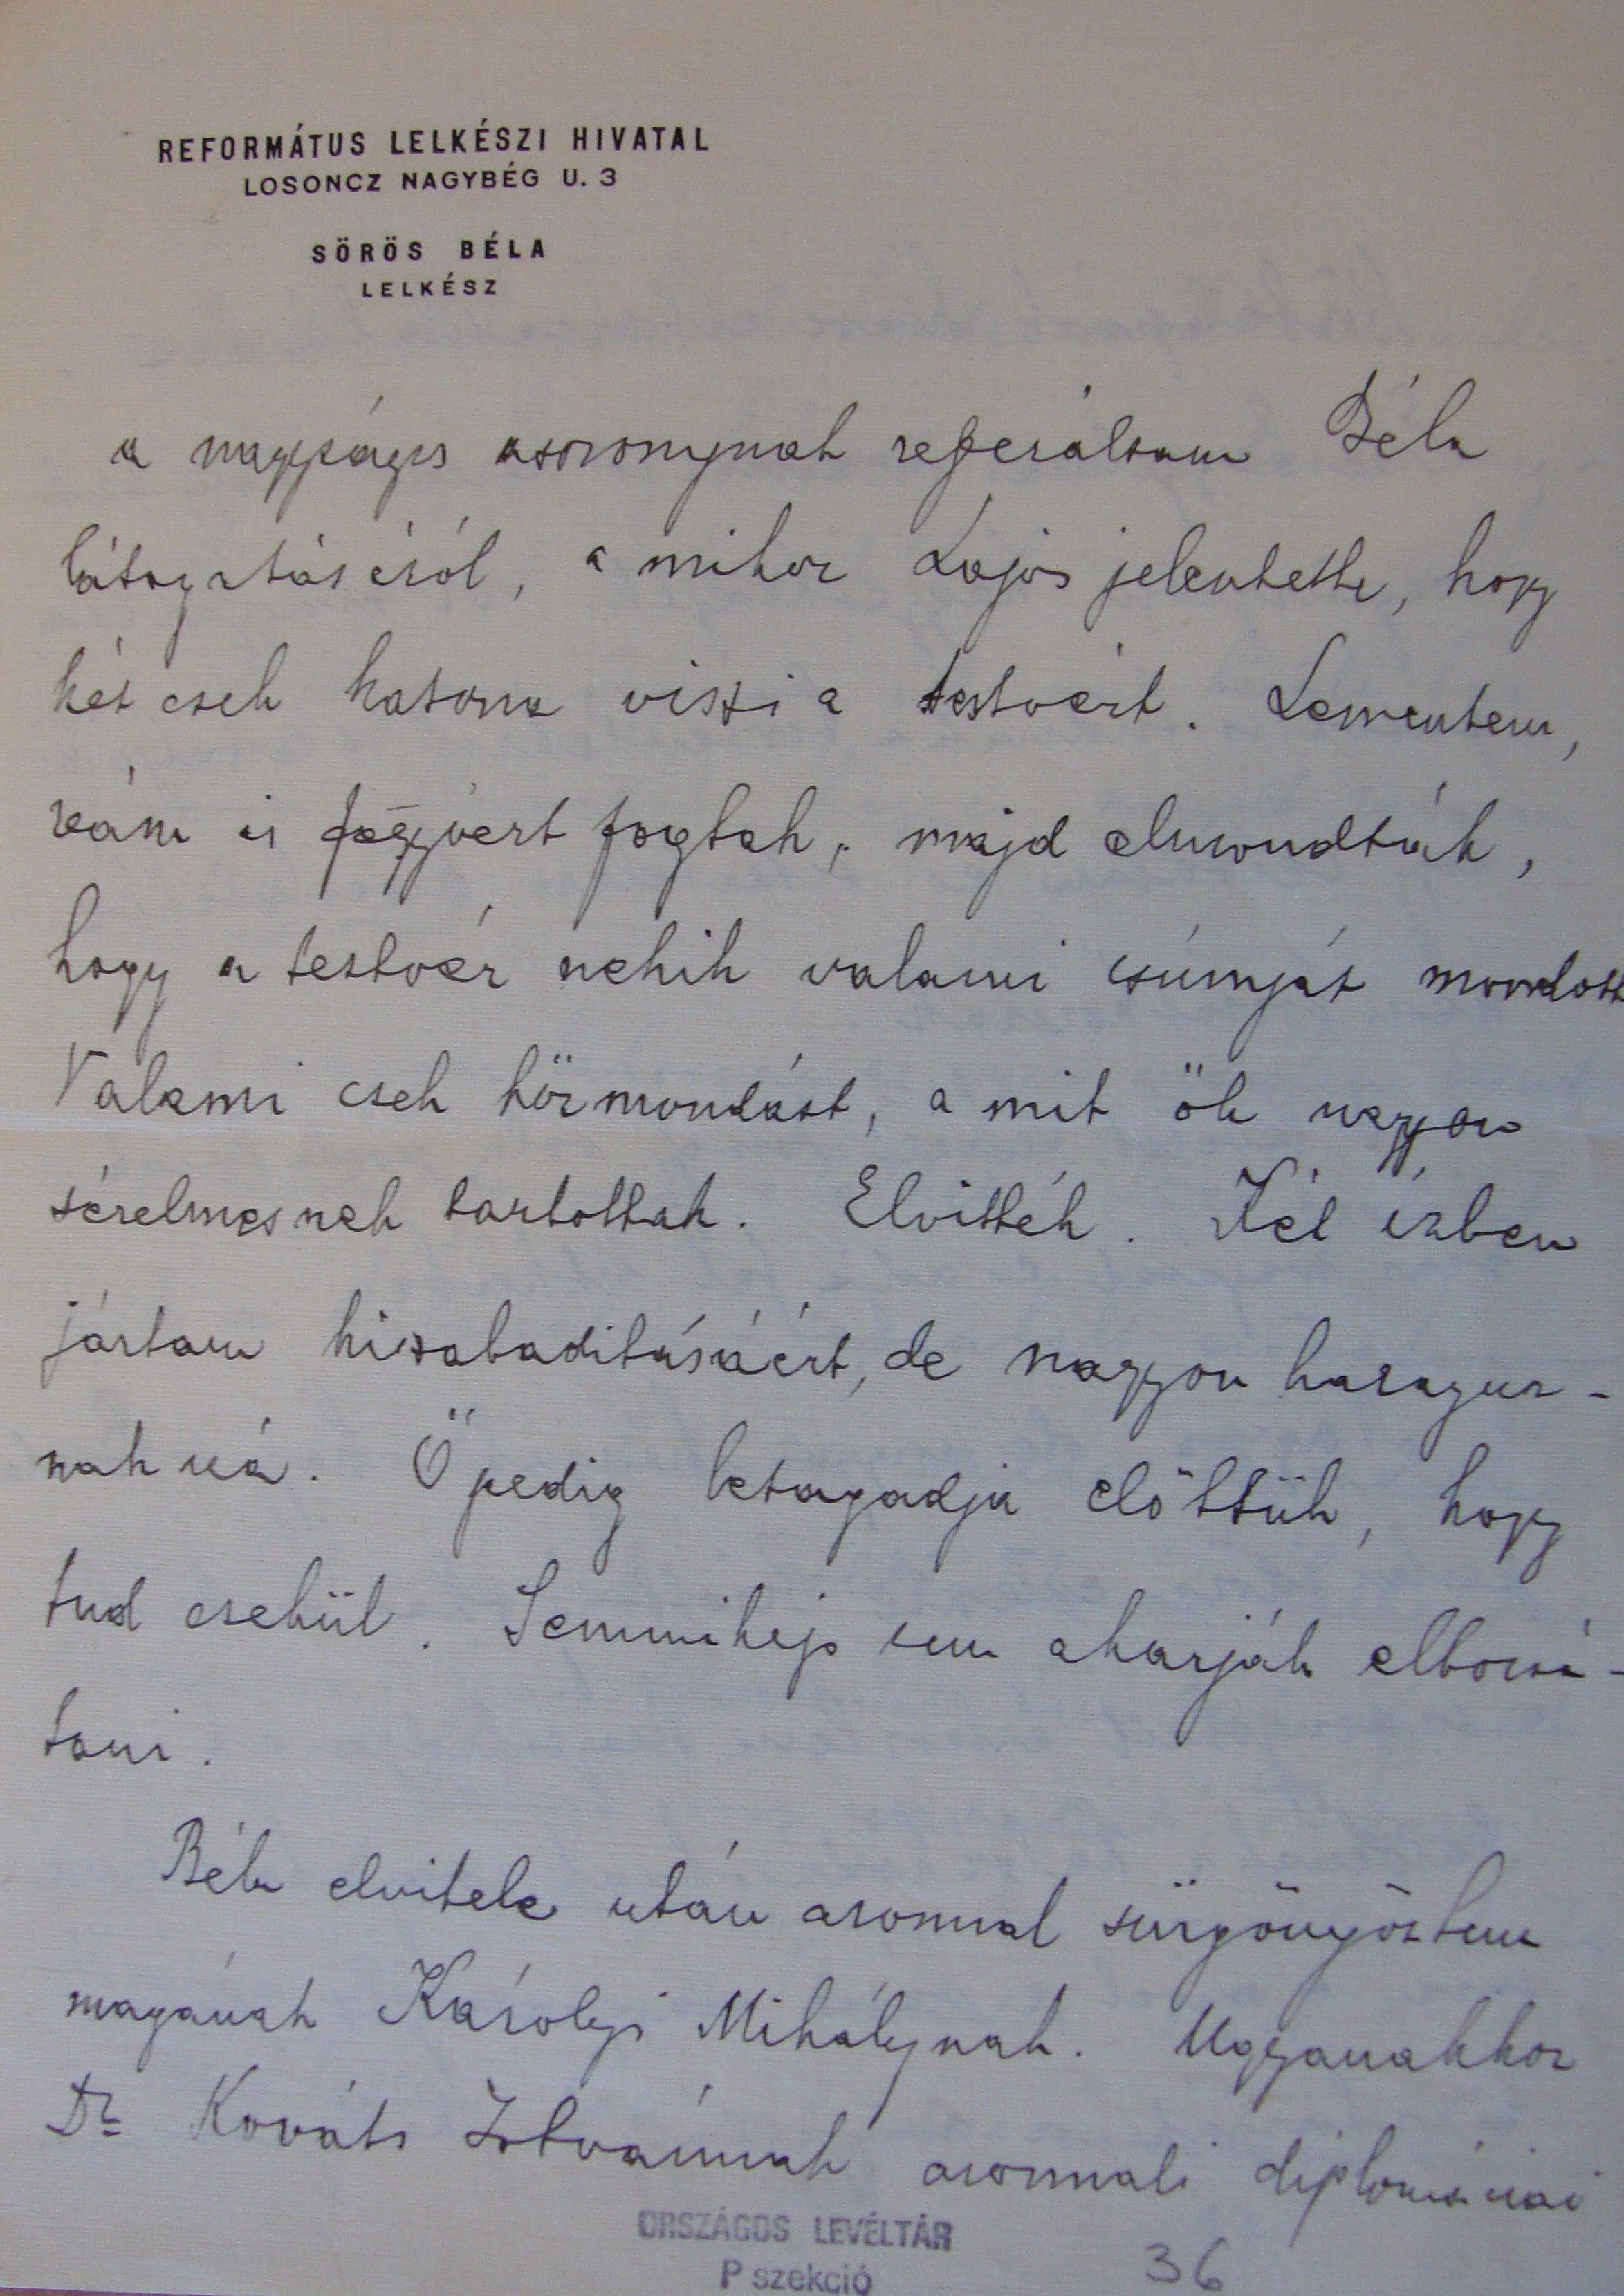 REFORMÁTUS LELKÉSZI HIVATAL
LOSONCZ NAGYBÉG U. 3
SÖRÖS BÉLA
LELKÉSZ
a nagyságos asszonynak referáltam Béla
látogatásáról, a mikor Lajos jelentette, hogy
két cseh katona viszi a testvért. Lementem,
reám is fegyvert fogtak, majd elmondták,
hogy a testvér nekik valami csúnyát mondott
Valami cseh körmondást, a mit ők nagyon
sérelmesnek tartottak. Elvitték. Két ízben
jártam kiszabadításáért, de nagyon haragusz-
nak reá. Ő pedig letagadja előttük, hogy
tud csehül. Semmikép sem akarják elbocsá-
tani.
Béla elvitele után azonnal sürgönyöztem
magának Károlyi Mihálynak. Ugyanakkor
Dr Kováts Istvánnak azonnali diplomáciai
ORSZÁGOS LEVÉLTÁR
P szekció
36